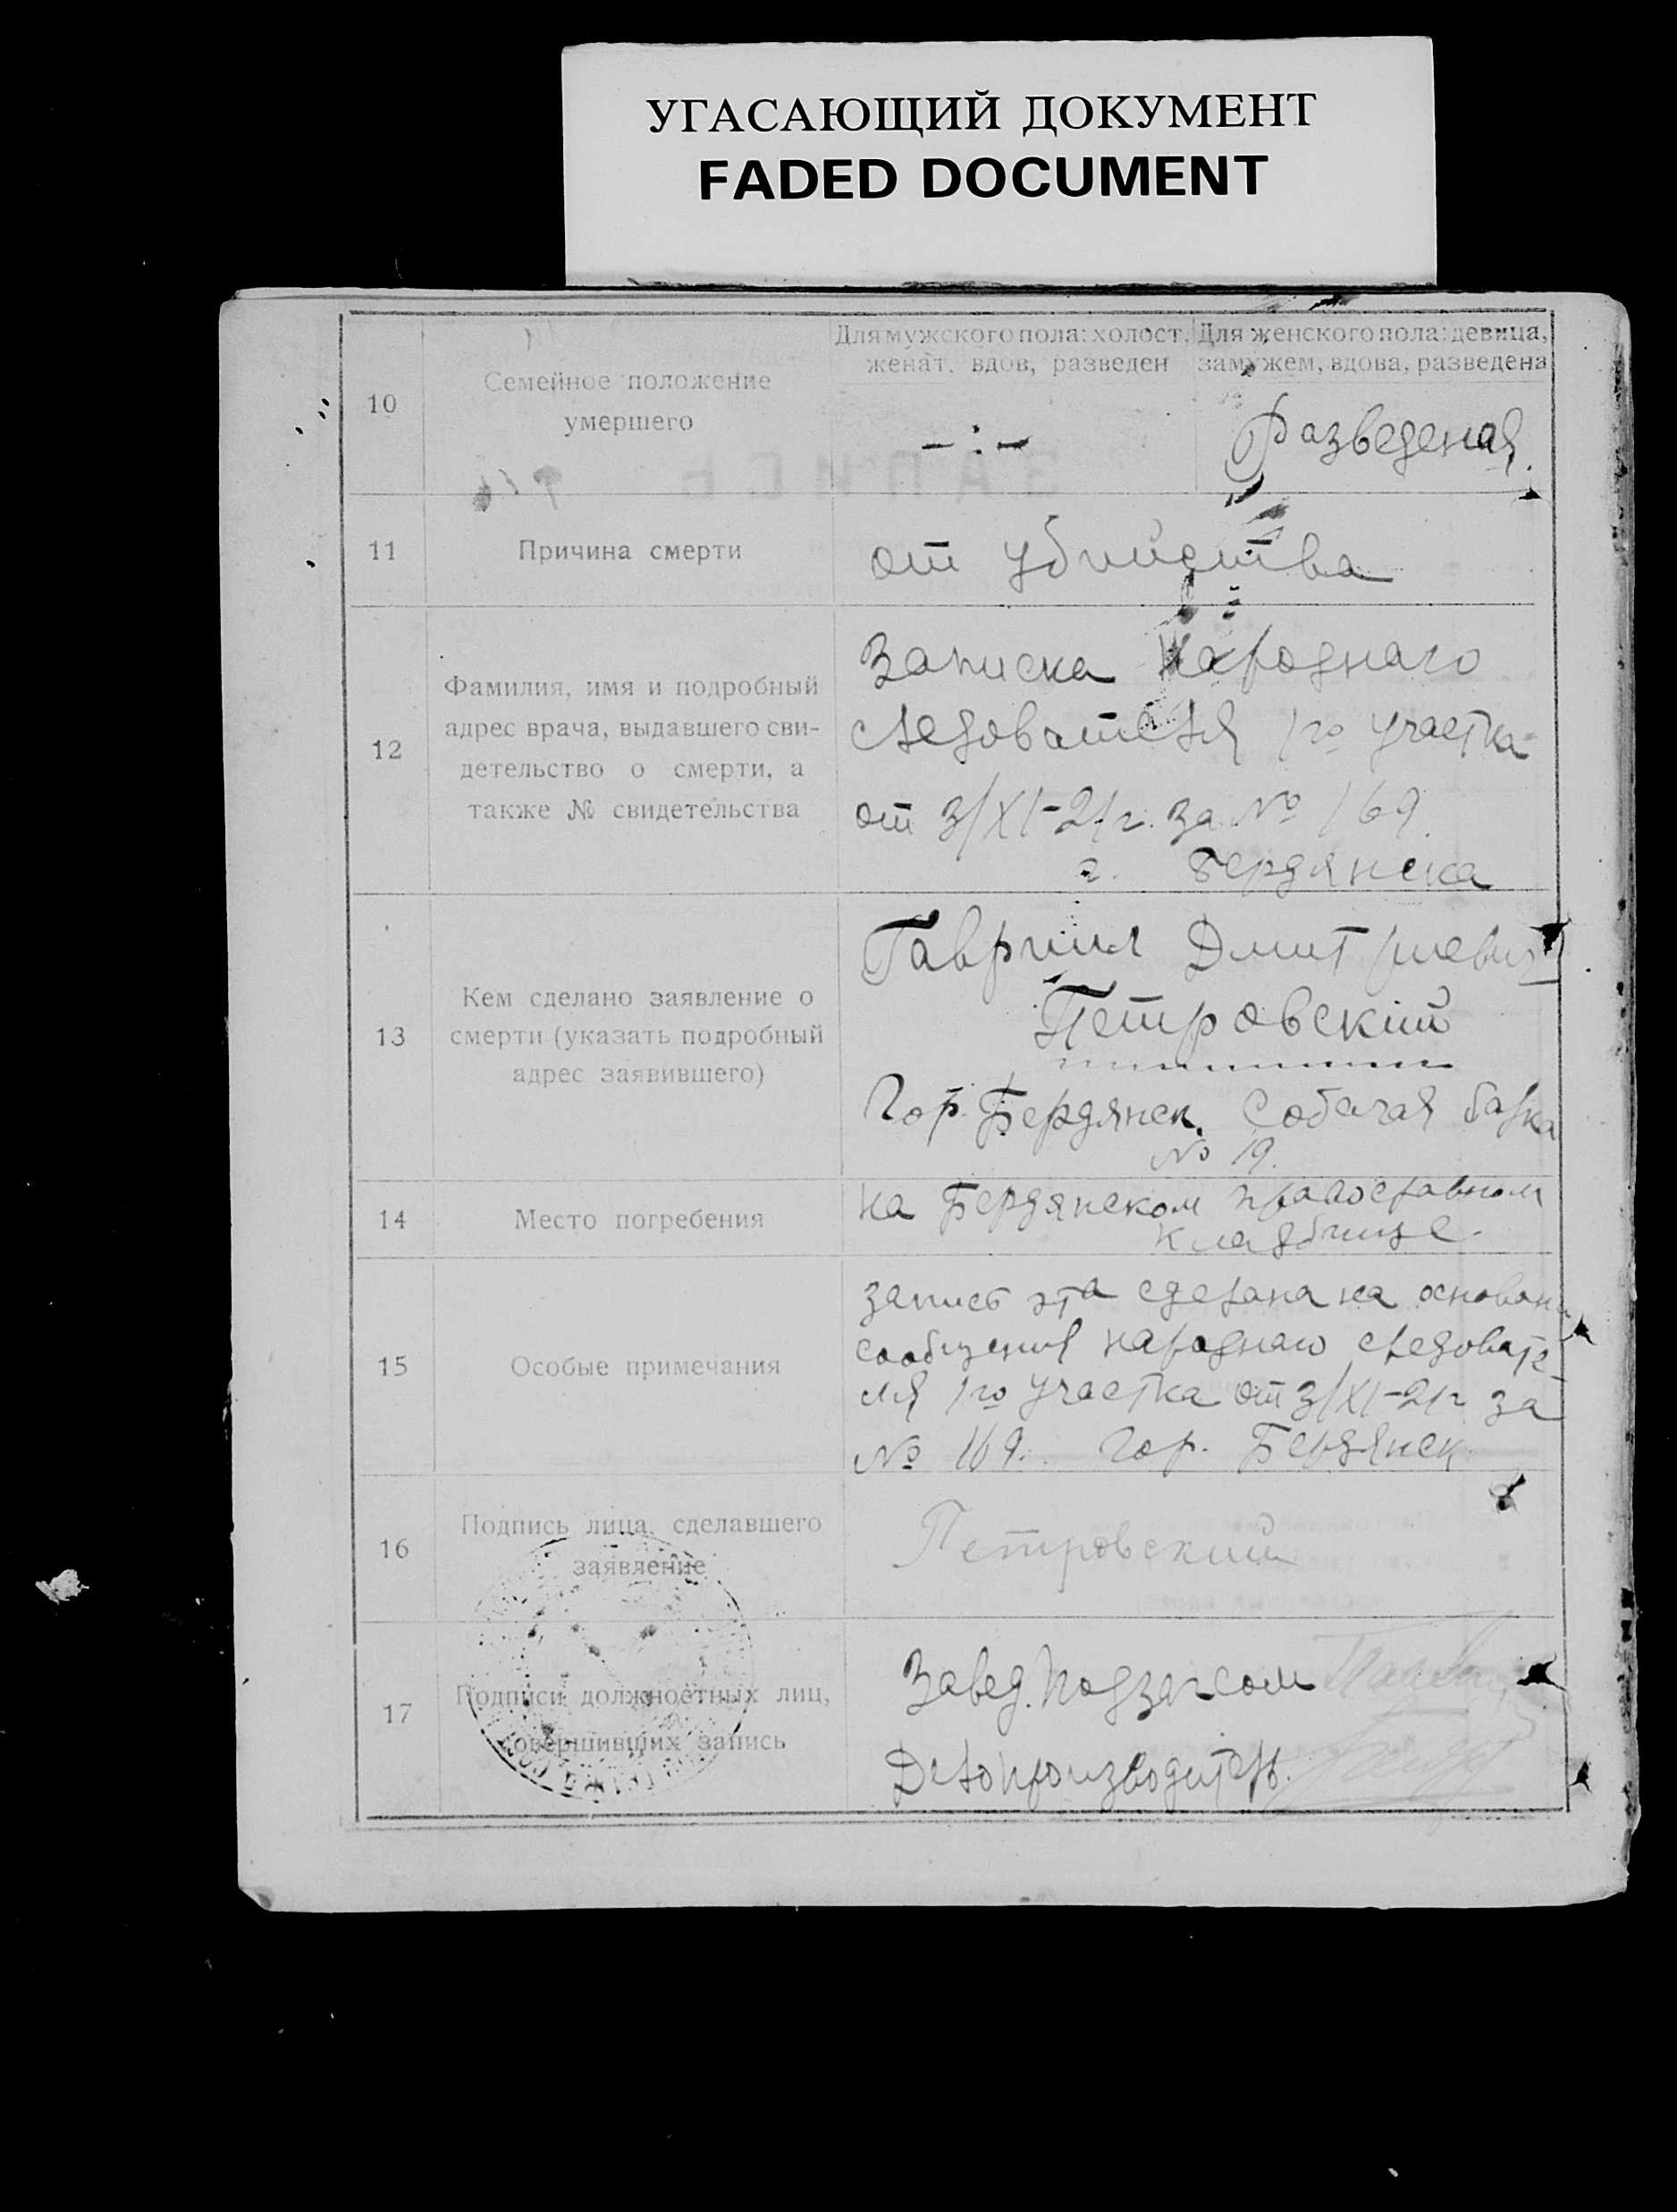 УГАСАЮЩИЙ ДОКУМЕНТ
FADED DOCUMENT
10
Семейное положение
умершего
Для мужского пола: холост,
женат, вдов, разведен
Для женского пола: девица,
замужем, вдова, разведена
— : —
Разведеная
11
Причина смерти
от убийства
12
Фамилия, имя и подробный
адрес врача, выдавшего сви-
детельство о смерти, а
также № свидетельства
Записка Народнаго
следователя 1го участка
от 3/XI-21г. за № 169.
г. Бердянска
13
Кем сделано заявление о
смерти (указать подробный
адрес заявившего)
Гавриил Дмитриевич
Петровский
Гор. Бердянск. Собачая балка
№ 19.
14
Место погребения
на Бердянском православном
кладбище.
15
Особые примечания
запись эта сделана на основани
сообщения народнаго следовате
ля 1го участка от 3/XI-21г за
№ 169. Гор. Бердянск
16
Подпись лица, сделавшего
заявление
Петровский
17
Подписи должностных лиц,
совершивших запись
Завед. Подзагсом
Делопроизводитель.